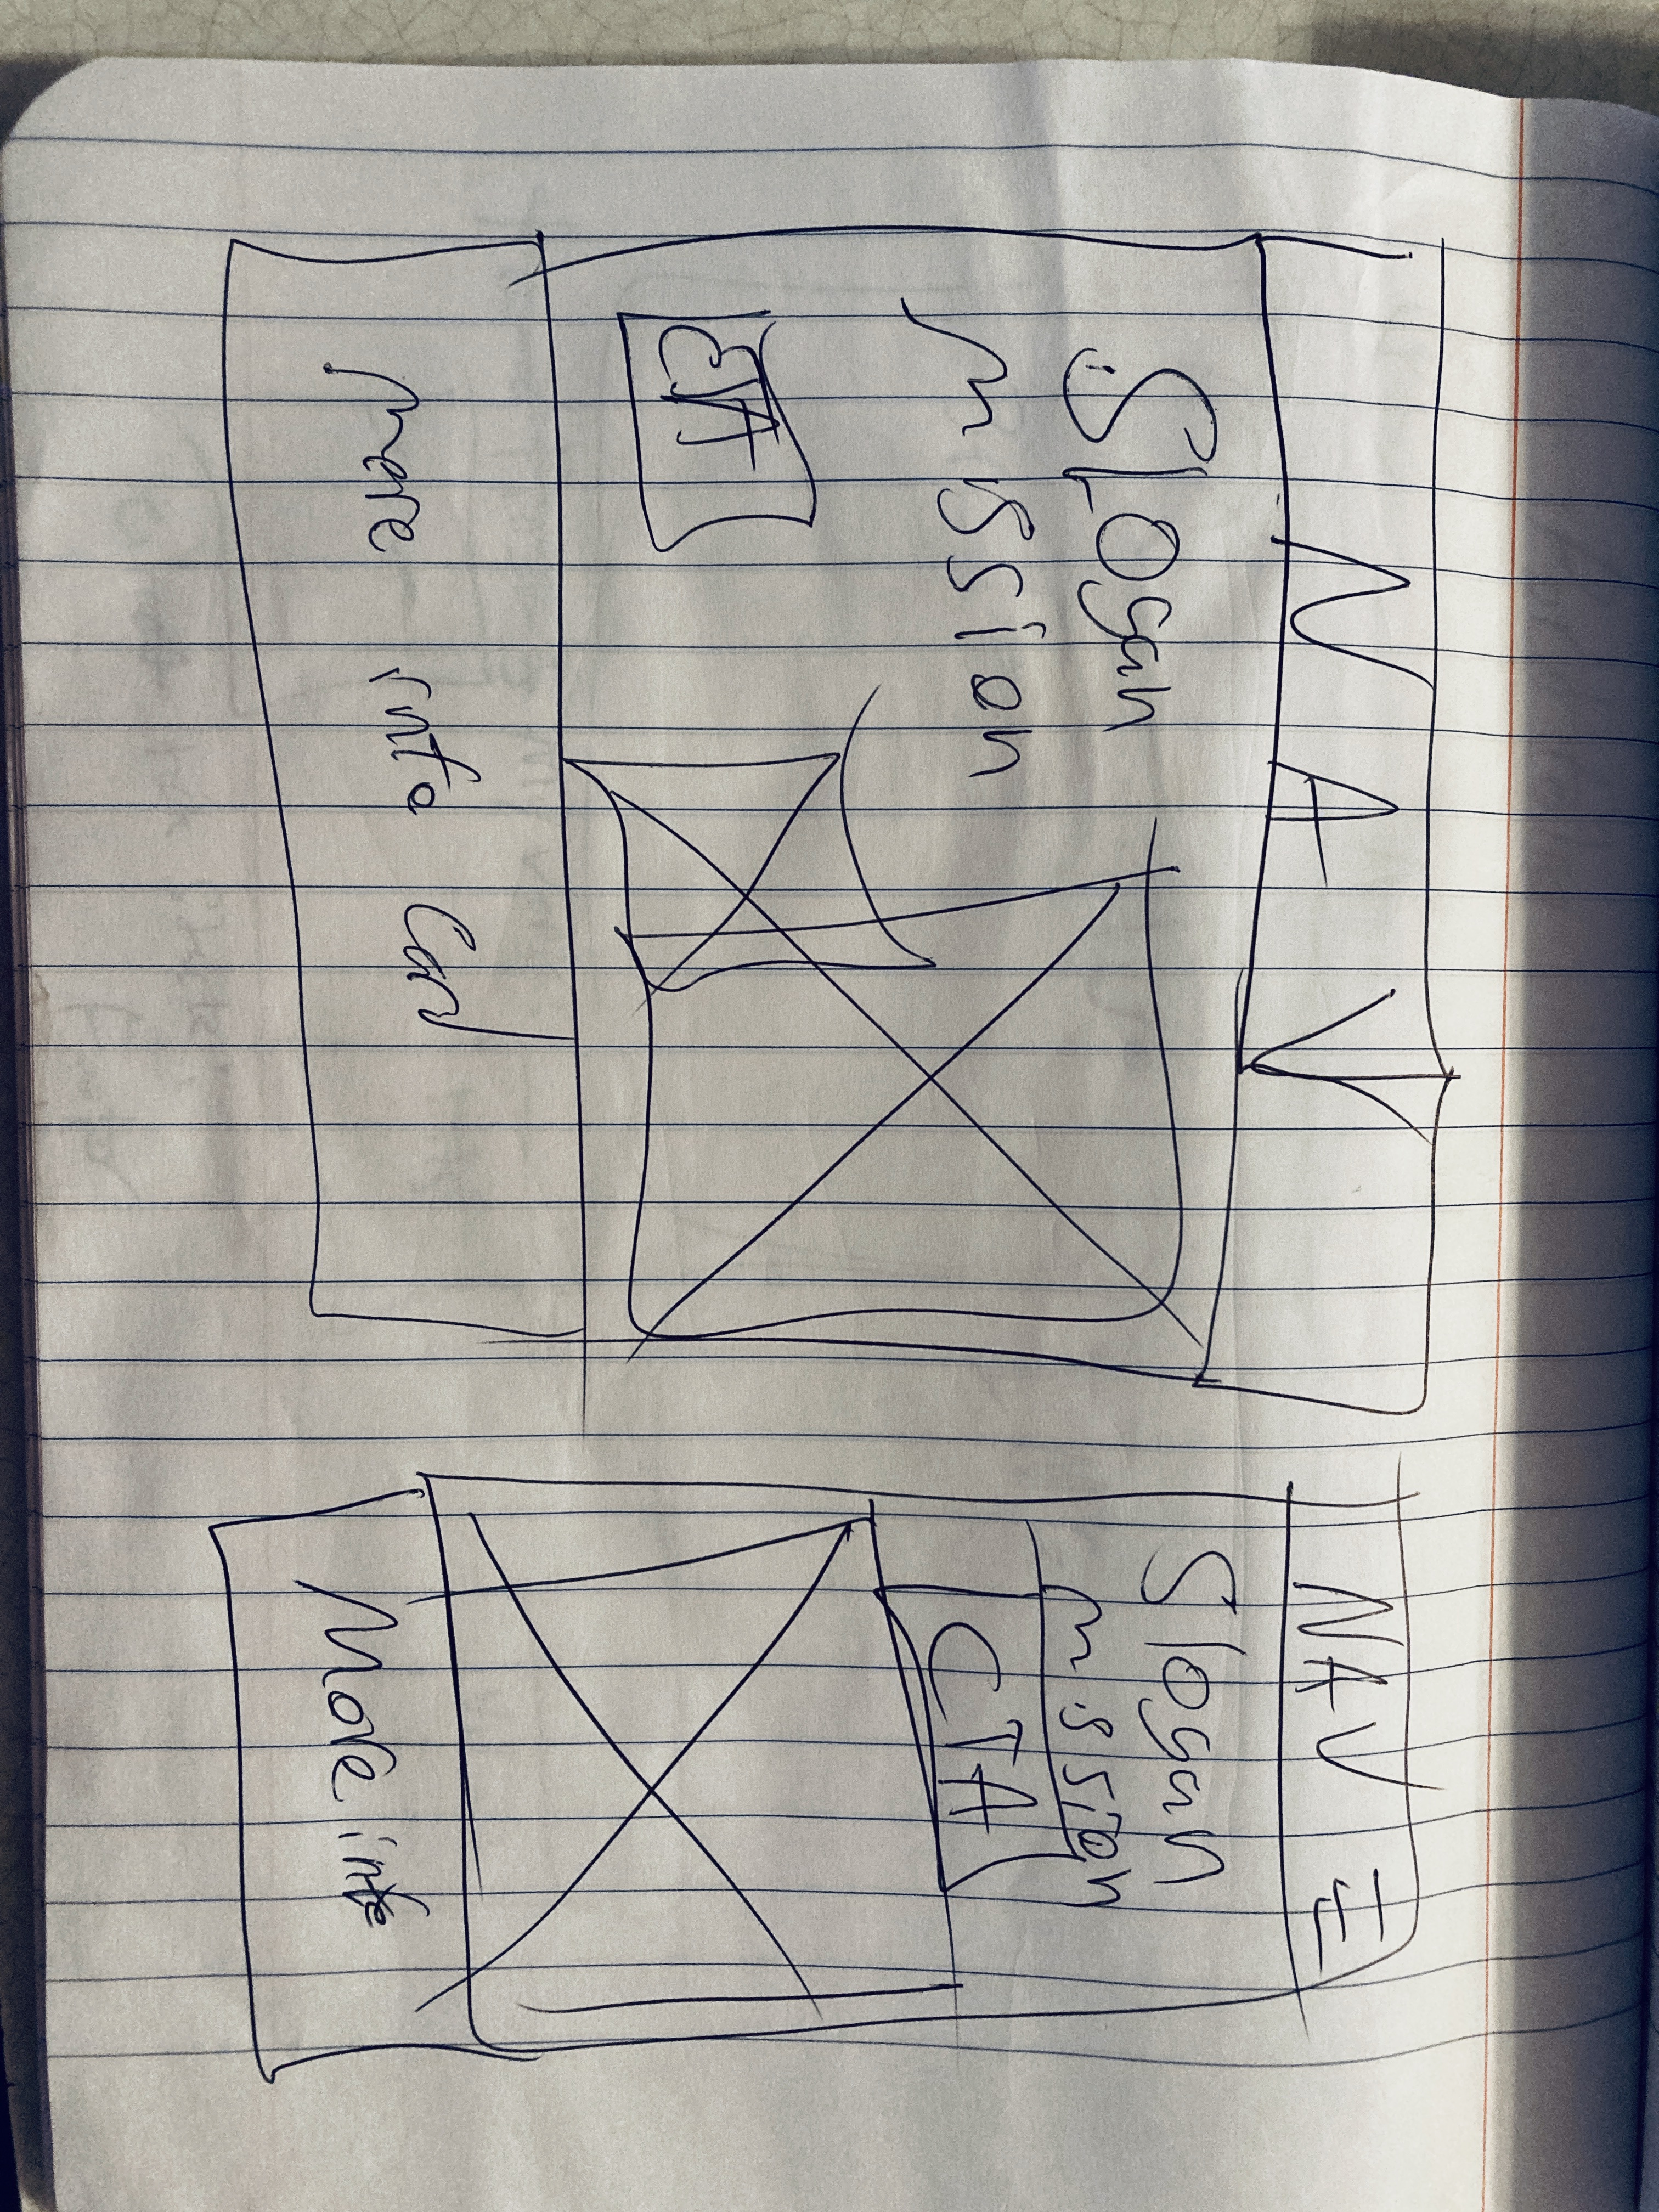 NAV
SLOgan
mission
CTA
more info Card
NAV
Slogan
mission
CTA
More info